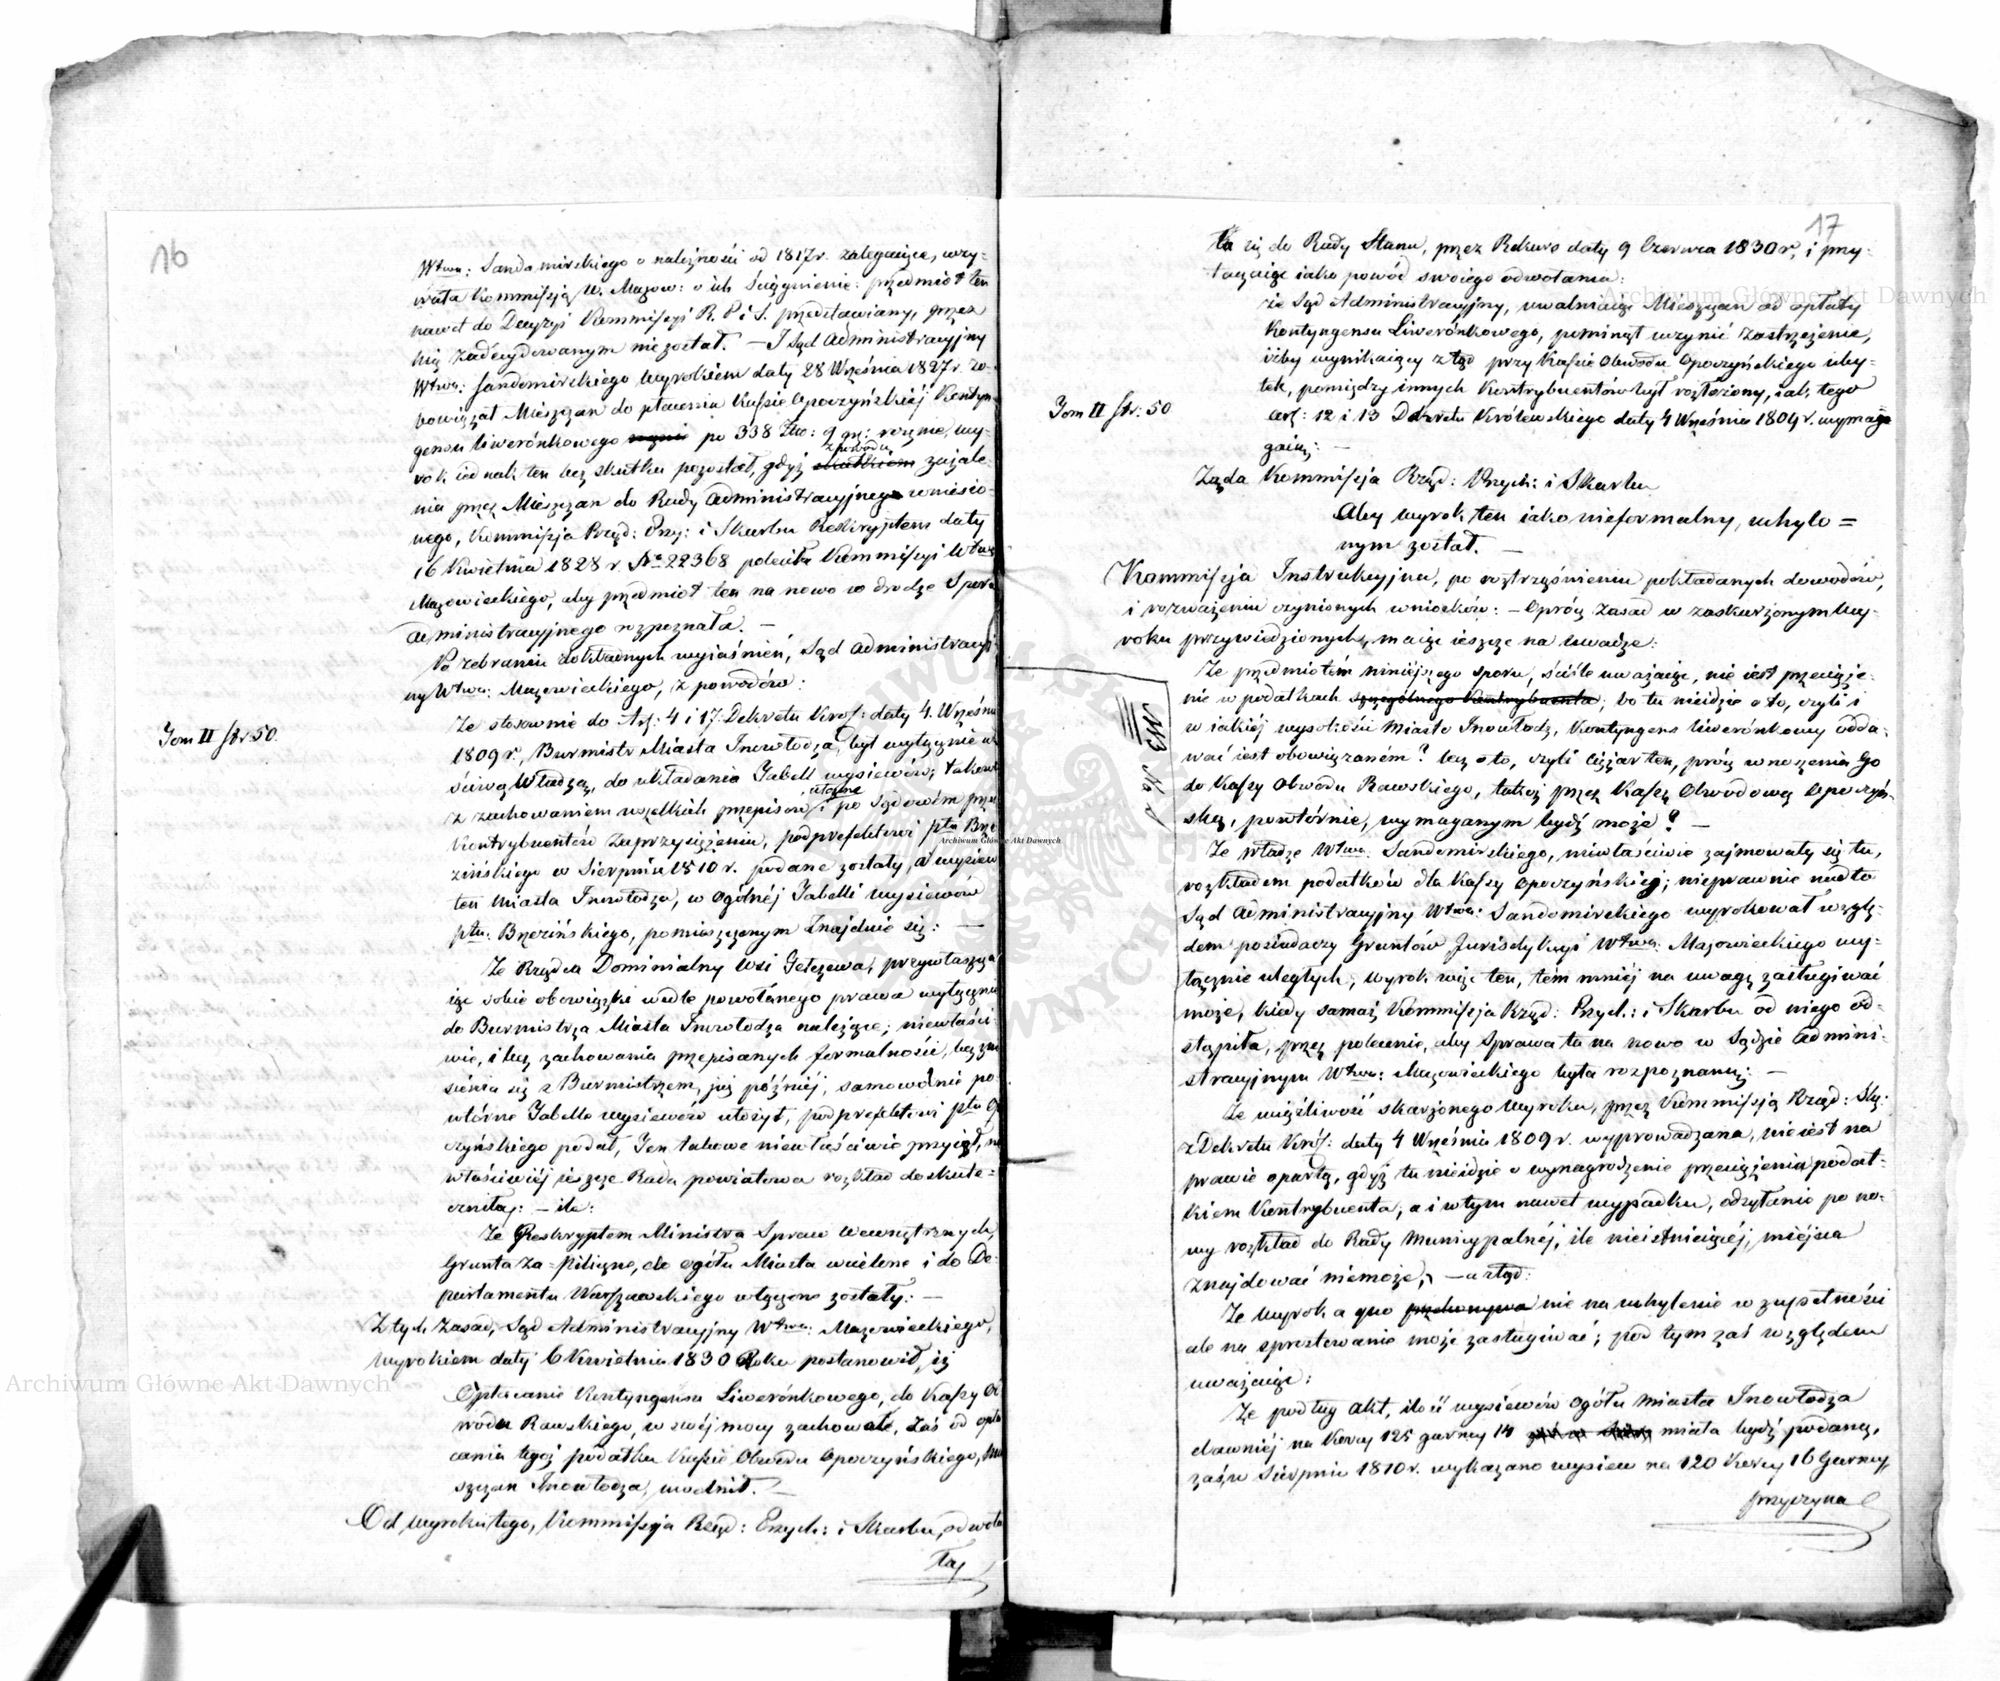 16
Wtwa: Sandomirskiego o należności od 1817 r. zalegaiące, wzy-
wała Kommissją W. Mazow: o ich ściągnienie: przedmiot ten
nawet do Decyzyi Kommissyi R. P. i S. przedstawiany, przez
nią zadecydowanym nie został. — I Sąd Administracyjny
Wtwa: Sandomirskiego wyrokiem daty 28 Września 1827 r. zo-
bowiązał Mieszczan do płacenia Kassie Opoczyńskiéj Kontyn-
gensu liwerónkowego po 338 Złtt: 9 gr: rocznie, wy-
z powodu
rok iednak ten bez skutku pozostał, gdyż skutkiem zażale-
nia przez Mieszczan do Rady Administracyjnego wniesio-
nego, Kommissja Rząd: Przy: i Skarbu Reskryptem daty
16 Kwietnia 1828 r. No 22368 poleciła Kommissyi Wtwa
Mazowieckiego, aby przedmiot ten na nowo w drodze Spor
administracyjnego rozpoznała. —
Po zebraniu dokładnych wyjaśnień, Sąd Administracyj
ny Wtwa: Mazowieckiego, z powodów:
Tom II str. 50.
Że stosownie do Art: 4 i 17. Dekretu Król: daty 4. Wrześni
1809 r., Burmistrz Miasta Inowłodza, był wyłącznie w
ściwą Władzą, do układania Tabell wysiewów, takow
ułożone
z zachowaniem wszelkich przepisów i po Sądowém prze
Kontrybuentów zaprzysiężeniu, podprefektowi ptu Brze
zińskiego w Sierpniu 1810 r. podane zostały, a wysiew
ten Miasta Inowłodza, w ogólnéj Tabelli wysiewów
ptu. Brzezińskiego, pomieszczonym znajduie się: —
Że Rządca Dominialny wsi Gełczewa, przywłaszcza
iąc sobie obowiązki wedle powołanego prawa wyłącznie
do Burmistrza Miasta Inowłodza należące, niewłaści-
wie, i bez zachowania przepisanych formalności, bez zni
sienia się z Burmistrzem, już późniéj, samowolnie po
wtórne Tabelle wysiewów ułożył, podprefektowi ptu O
czyńskiego podał, Ten takowe niewłaściwie przyiął, n
właściwiéj ieszcze Rada powiatowa rozkład doskute-
czniła: — ile:
Że Reskryptem Ministra Spraw Wewnętrznych,
Grunta Za-piliczne, do ogółu Miasta wcielone i do De-
partamentu Warszawskiego włączone zostały: —
Z tych zasad, Sąd Administracyjny Wtwa: Mazowieckiego,
Wyrokiem daty 6 Kwietnia 1830 Roku postanowił, iż
Opłacanie Kontyngensu Liwerónkowego, do Kassy O
wodu Rawskiego, w swéj mocy zachował, zaś od opła
cania tegoż podatku Kassie Obwodu Opoczyńskiego, Mie
szczan Inowłodza, uwolnił. —
Od wyroku tego, Kommissja Rząd: Przych: i Skarbu, odwoła
łaj
17
ła się do Rady Stanu, przez Rekurs daty 9 Czerwca 1830 r., i przy-
taczaiąc iako powód swoiego odwołania:
że Sąd Administracyjny, uwalniaiąc Mieszczan od opłaty
Kontyngensu Liwerónkowego, pominął uczynić zastrzeżenie,
iżby wynikaiący ztąd przy Kassie Obwodu Opoczyńskiego uby-
tek, pomiędzy innych Kontrybuentów był rozłożony, iak tego
Tom II str. 50
Art: 12 i 13 Dekretu Królewskiego daty 4 Września 1809 r. wymaga
gaią: —
Żąda Kommissja Rząd: Przych: i Skarbu
Aby wyrok ten iako nieformalny, uchylo=
nym został. —
Kommissja Instrukcyjna, po roztrząśnieniu pokładanych dowodów,
i rozważeniu czynionych wniosków: — Oprócz zasad w zaskarżonym wy-
roku przywiedzionych, maiąc ieszcze na uwadze:
NB No 2
Że przedmiotém niniéjszego sporu, ściśle uważaiąc, nie iest przeciąże-
nie w podatkach szczególnego Kontrybuenta; bo tu nieidzie o to, czyli i
w iakiéj wysokości Miasto Inowłodz, Kontyngens liwerónkowy odda-
wać iest obowiązaném? lecz o to, czyli ciężar ten, prócz wnoszenia Go
do Kassy Obwodu Rawskiego, także przez Kassę Obwodową Opoczyń-
ską, powtórnie, wymaganym bydź może? —
Że władze Wtwa: Sandomirskiego, niewłaściwie zajmowały się tu,
rozkładem podatków dla Kassy Opoczyńskiéj; nieprawnie nadto
Sąd Administracyjny Wtwa: Sandomirskiego wyrokował wzglę-
dem posiadaczy Gruntów Jurisdykcyi Wtwa: Mazowieckiego wy-
łącznie uległych; wyrok więc ten, tém mniéj na uwagę zasługiwać
może, kiedy samaż Kommissja Rząd: Przych: i Skarbu od niego od-
stąpiła, przez polecenie, aby Sprawa ta na nowo w Sądzie Admini-
stracyjnym Wtwa: Mazowieckiego była rozpoznaną: —
Że uciążliwość skarżonego wyroku, przez Kommissją Rząd: Ską:
z Dekretu Król: daty 4 Września 1809 r. wyprowadzana, nie iest na
prawie opartą, gdyż tu nieidzie o wynagrodzenie przeciążenia podat-
kiem Kontrybuenta, a i w tym nawet wypadku, odsyłanie po no-
wy rozkład do Rady Municypalnéj, ile nieistnieiącéj, miéjsca
znajdować niemoże; — a ztąd:
Że wyrok a quo przekonywa nie na uchylenie w zupełności
ale na sprostowanie może zasługiwać; pod tym zaś względem
uważaiąc:
Że podług akt, ilość wysiewów ogółu miasta Inowłodza
dawniéj na Korcy 125 garncy 14 miała bydź podaną,
zaś w Sierpniu 1810 r. wykazano wysiew na 120 Korcy 16 Garncy,
przyczyna